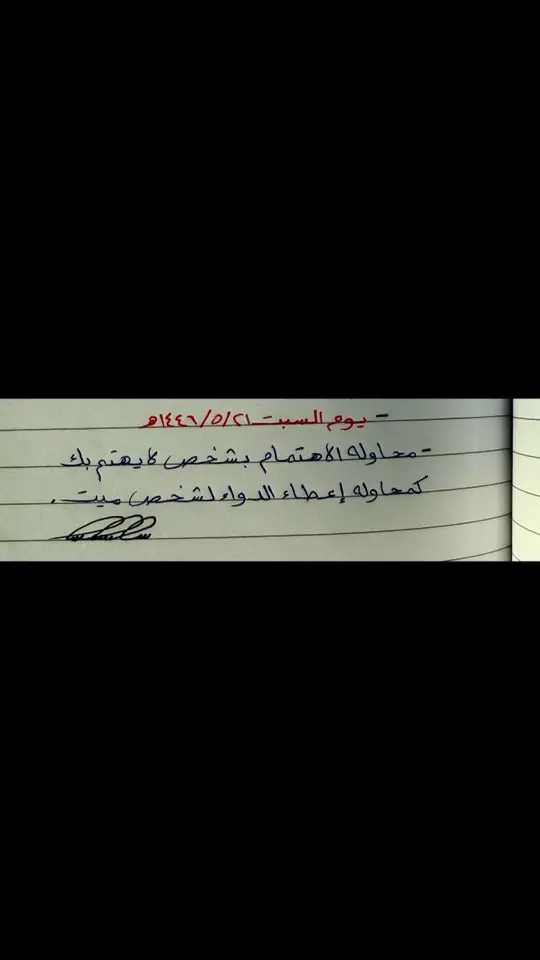 - يوم السبت ١٤٤٦/٥/٢١هـ
- محاوله الاهتمام بشخص لا يهتم بك
كمحاوله إعطاء الدواء لشخص ميت .